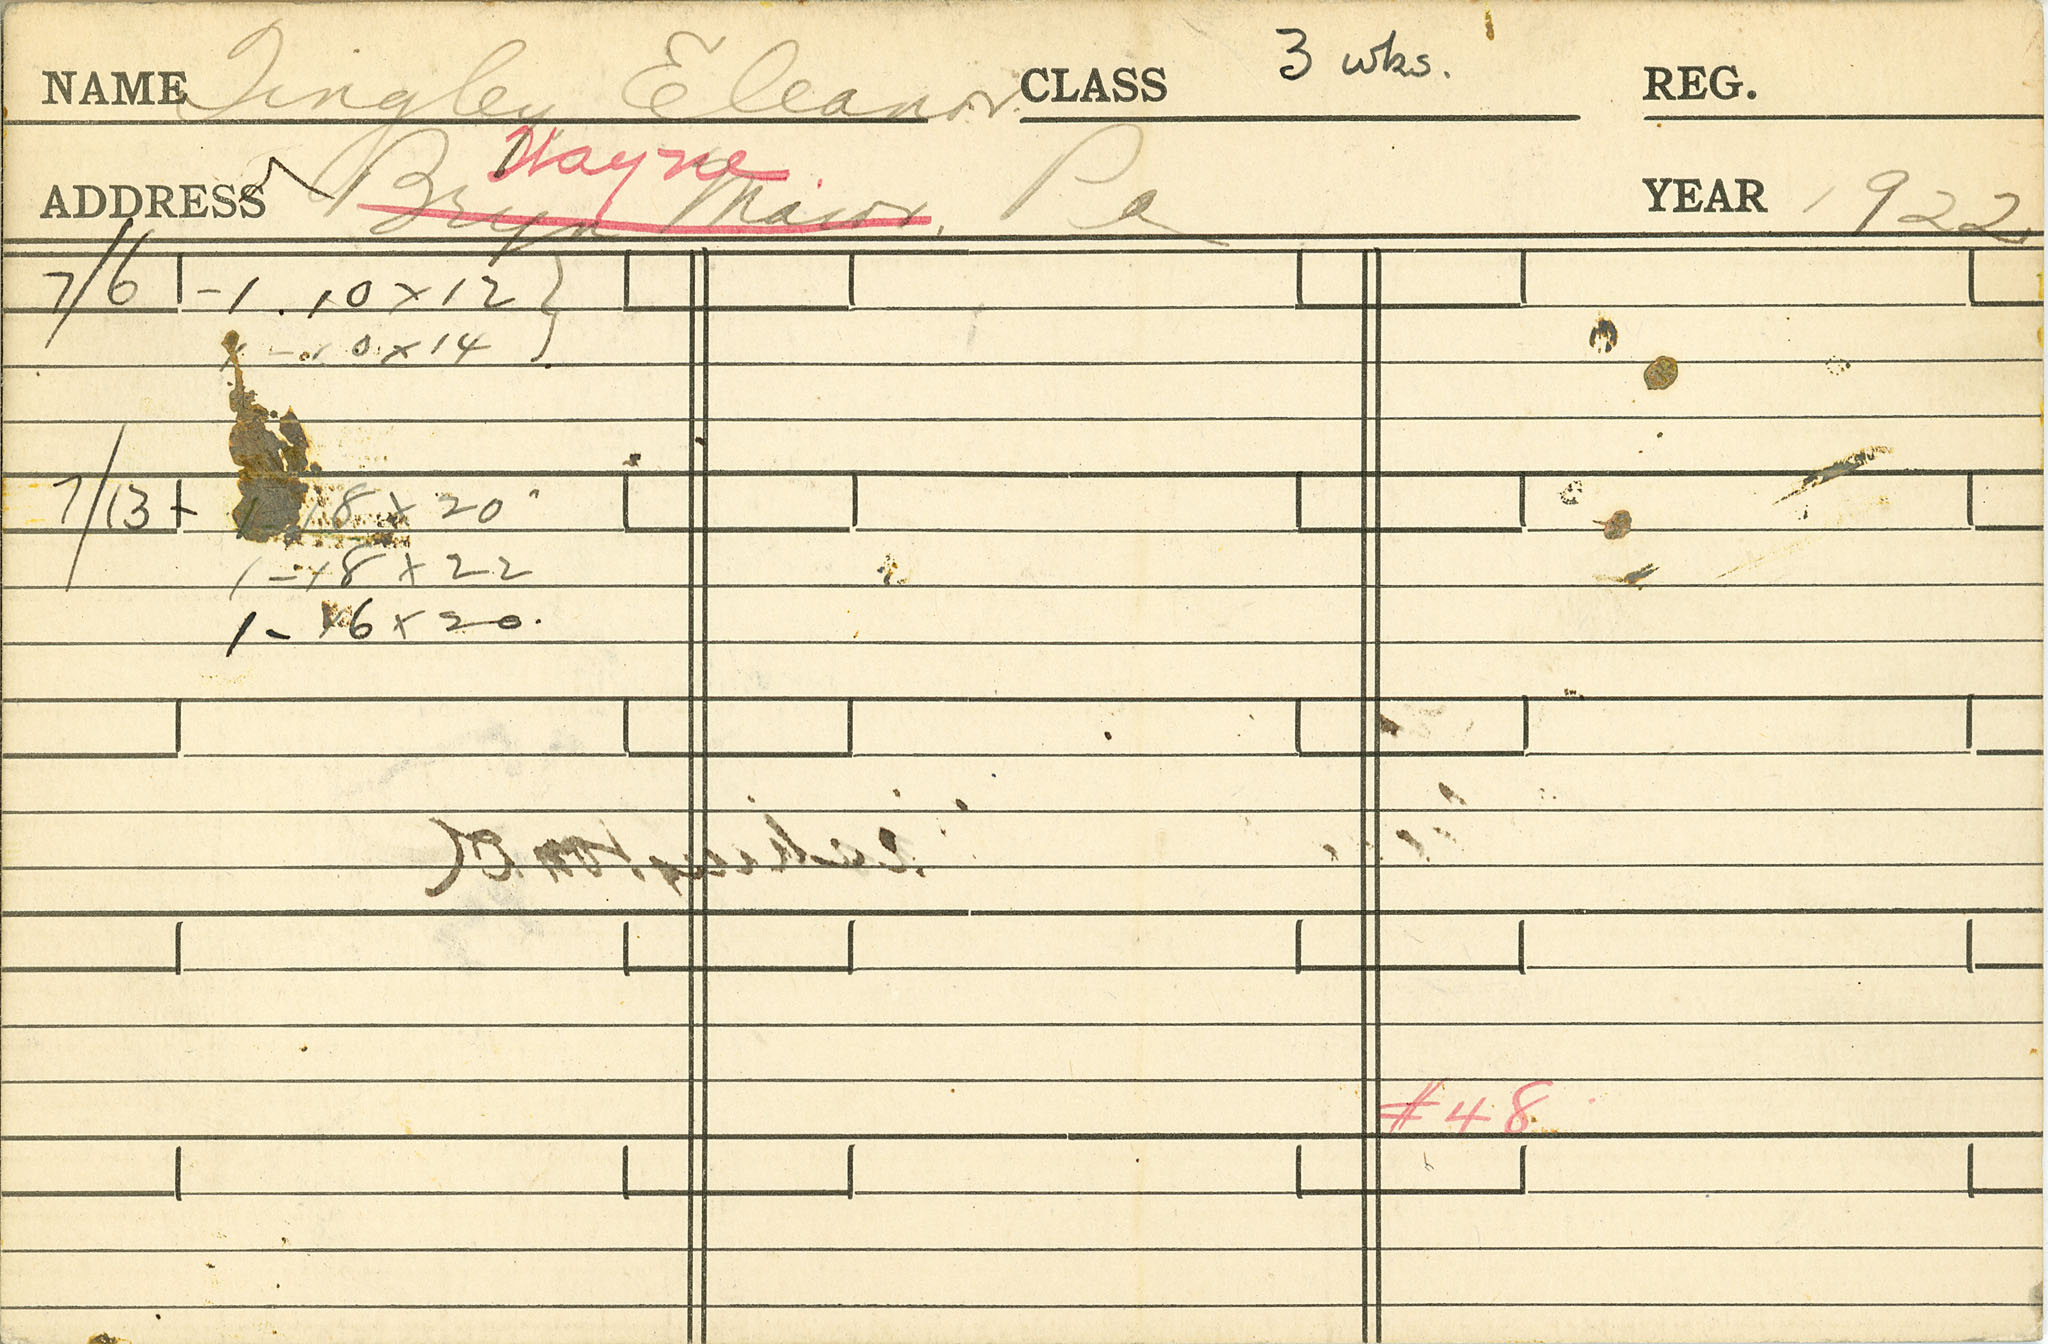 NAME Tingley Eleanor CLASS 3 wks. REG.
Wayne
ADDRESS Bryn Mawr, Pa YEAR 1922
7/6 - 1 . 10 x 12 }
1 - 10 x 14
7/13 + 1 - 18 x 20
1 - 18 x 22
1 - 16 x 20.
#48